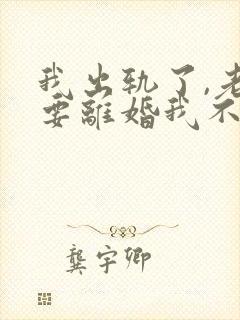 我出轨了,老
要離婚我不
龚宇卿